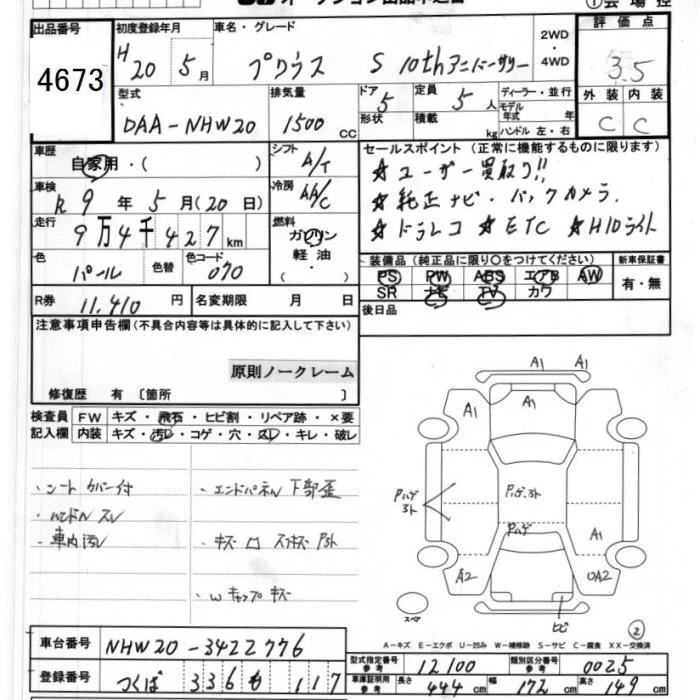 出品番号 初度登録年月 車名・グレード 2WD・4WD 評価点
4673 H20 5月 プリウス S 10thアニバーサリー 3.5
型式 排気量 ドア 5 定員 5人 ディーラー・並行 外装 内装
DAA-NHW20 1500cc 形状 積載 kg モデル年式 年 ハンドル 左・右 C C
車歴 自家用・( ) シフト A/T セールスポイント(正常に機能するものに限ります)
車検 R9年5月(20日) 冷房 AA/C ☆ユーザー買取り!!
走行 9万4千427km 燃料 ガソリン 軽油 ☆純正ナビ・バックカメラ
☆ドラレコ ☆ETC ☆HIDライト
色 パール 色替 色コード 070 装備品(純正品に限り〇をつけてください) 新車保証書
PS PW ABS エアB AW 有・無
SR ナビ TV カワ
R券 11,410円 名変期限 月 日 後日品
注意事項申告欄(不具合内容等は具体的に記入して下さい)
原則ノークレーム
修復歴 有〔箇所 〕
検査員 FW キズ・飛石・ヒビ割・リペア跡・×要
記入欄 内装 キズ・汚レ・コゲ・穴・スレ・キレ・破レ
・シートカバー付 ・エンドパネル下部歪
・ハンドルスレ
・車内汚レ
・Wキャップキズ
A1 A1
A1 A1
Pハゲ 3ト Pハゲ.3ト
Pハゲ A1
A2 UA2
スペア ヒビ ②
A-キズ E-エクボ U-凹み W-補修跡 S-サビ C-腐食 XX-交換済
車台番号 NHW20-3422776
型式指定番号 参考 12100 類別区分番号 参考 0025
登録番号 つくば 336 も 117
車庫証明用 参考 長さ 444cm 幅 172cm 高さ 149cm